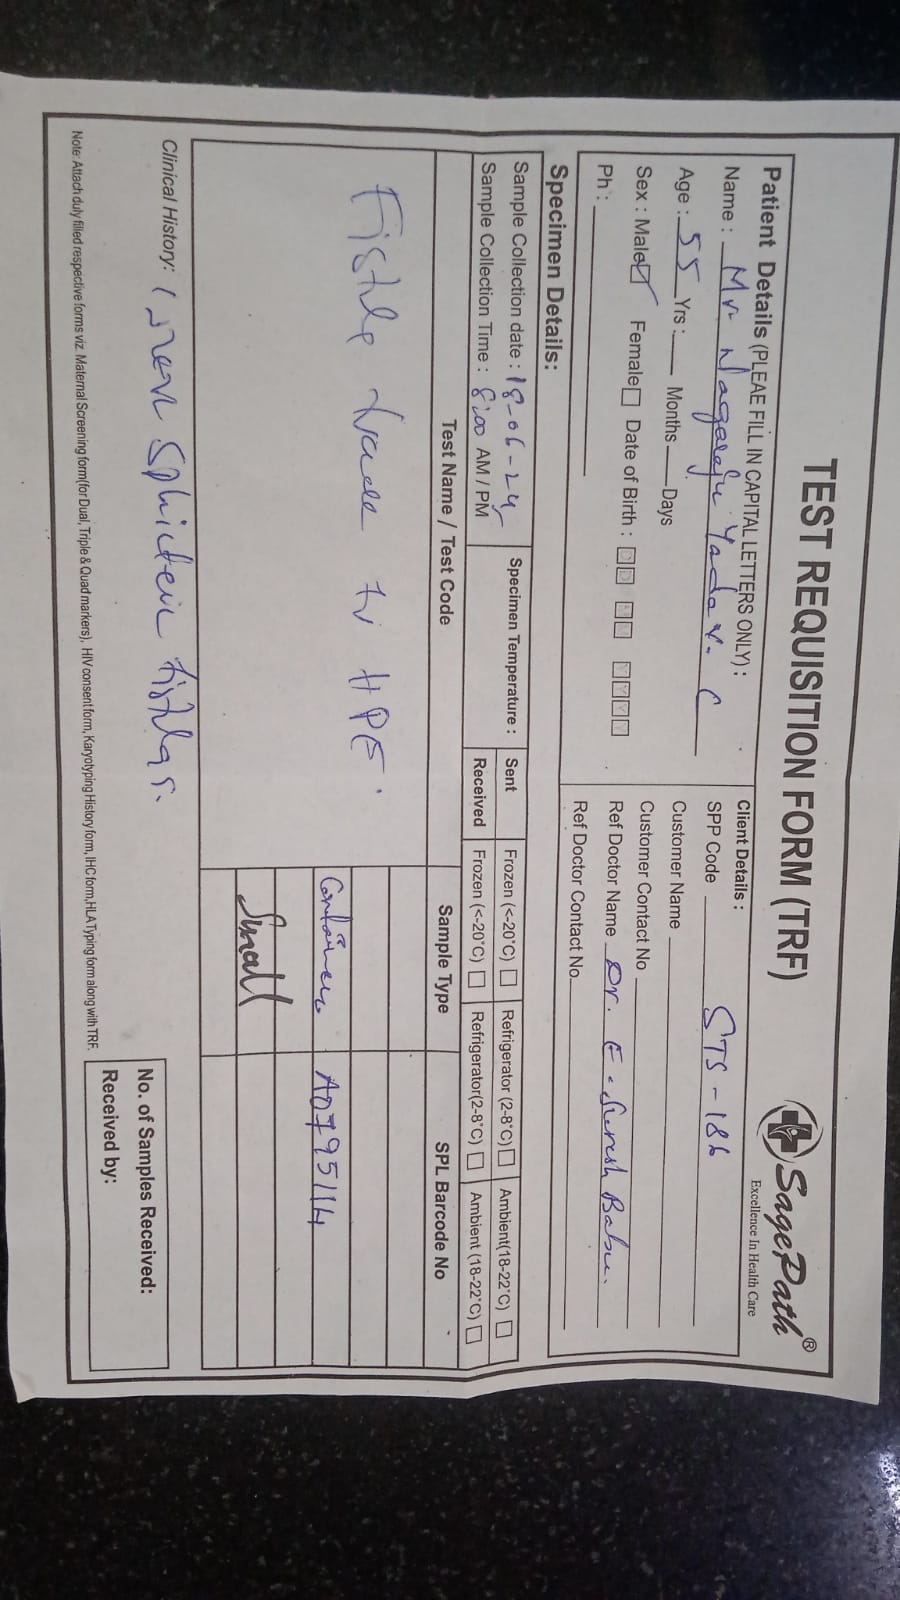 TEST REQUISITION FORM (TRF)
SagePath®
Excellence In Health Care
Patient Details (PLEAE FILL IN CAPITAL LETTERS ONLY) :
Name : Mr Nagaraju Yadav. C
Age : 55 Yrs : Months Days
Sex : Male ☑ Female ☐ Date of Birth : D D M M Y Y Y Y
Ph :
Client Details :
SPP Code STS-186
Customer Name
Customer Contact No
Ref Doctor Name Dr. E. Suresh Babu.
Ref Doctor Contact No.
Specimen Details:
Sample Collection date : 18-06-24
Sample Collection Time : 8:00 AM / PM
Specimen Temperature :
Sent Frozen (<-20°C) ☐ Refrigerator (2-8°C) ☐ Ambient(18-22°C) ☐
Received Frozen (<-20°C) ☐ Refrigerator(2-8°C) ☐ Ambient (18-22°C) ☐
Test Name / Test Code Sample Type SPL Barcode No
HPE.
Container A0795114
Small
Clinical History:
Note: Attach duly filled respective forms viz. Maternal Screening form(for Dual, Triple & Quad markers), HIV consent form, Karyotyping History form, IHC form,HLA Typing form along with TRF.
No. of Samples Received:
Received by: